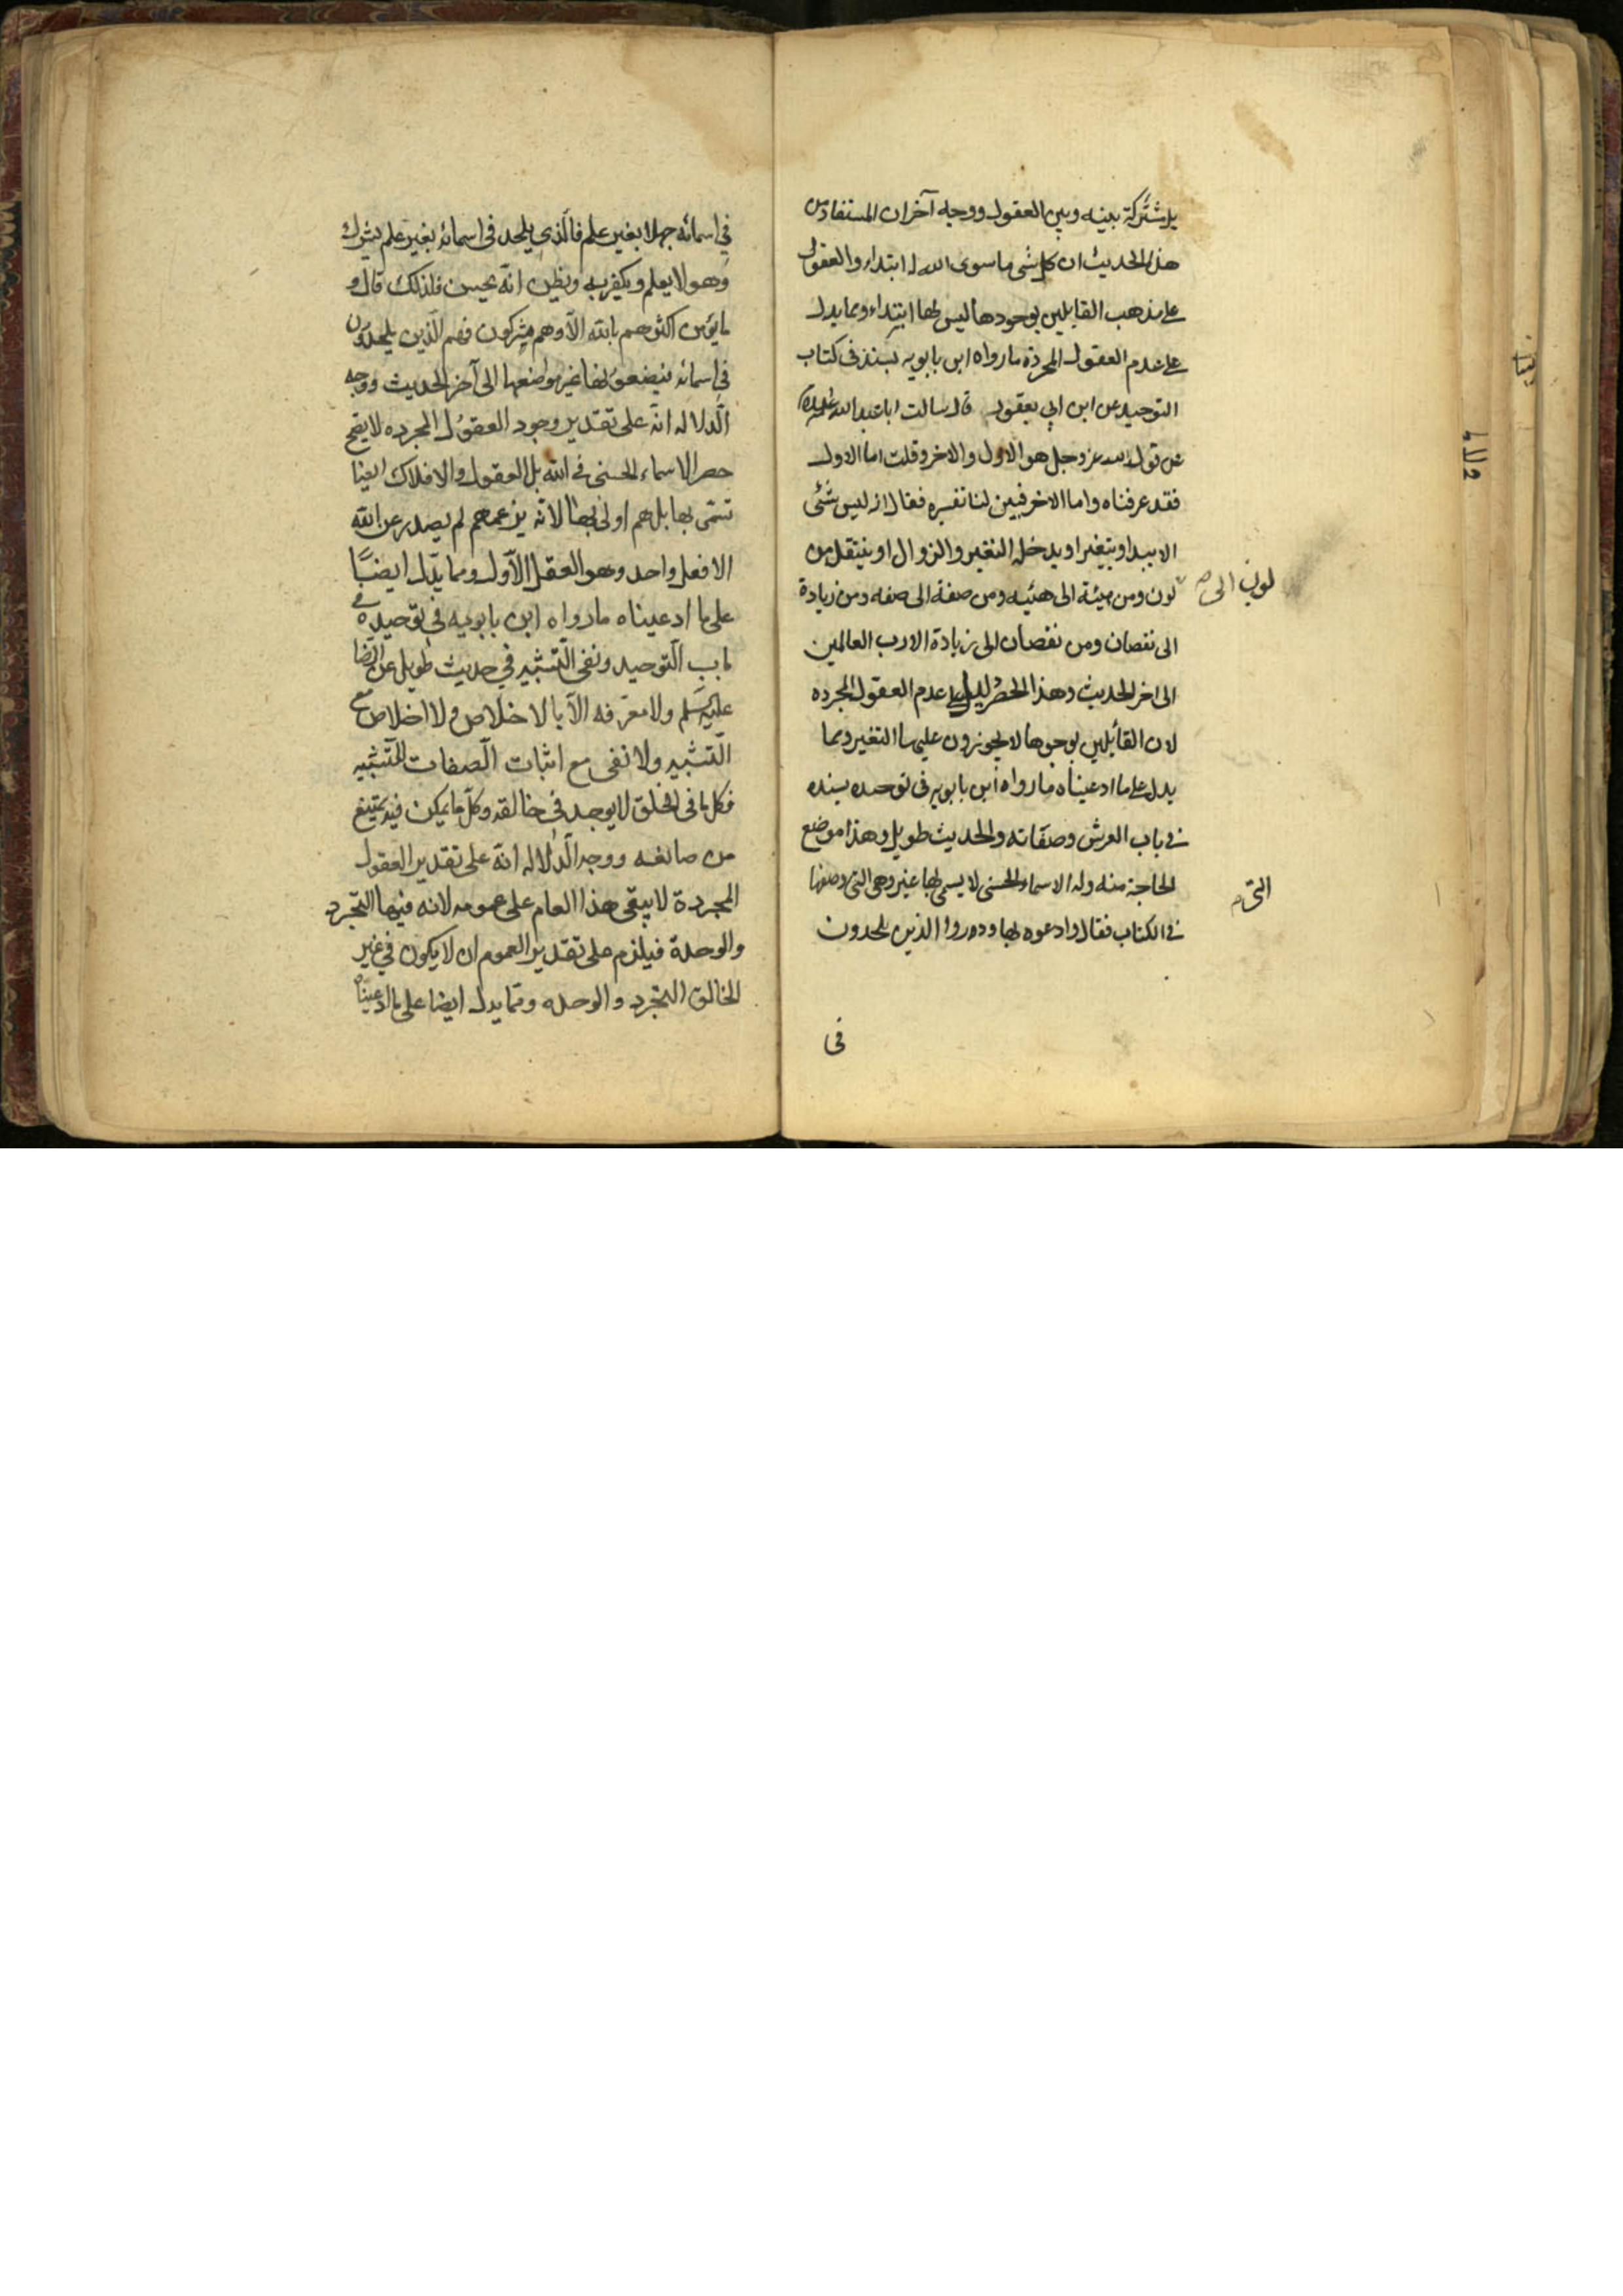 بل مشتركة بينه وبين العقول ووجه آخر ان المستفاد من
هذا الحديث ان كل شى ما سوى الله له ابتداء والعقول
على مذهب القايلين بوجودها ليس لها ابتداء ومما يدل
على عدم العقول المجردة ما رواه ابن بابويه بسنده فى كتاب
التوحيد عن ابن ابي يعفور قال سالت ابا عبد الله عليه السلام
عن قول الله عز وجل هو الاول والاخر وقلت اما الاول
فقد عرفناه واما الاخر فبين لنا تفسيره فقال انه ليس شئى
الا يبيد او يتغير او يدخله التغير والزوال او ينتقل من
لون ومن هيئة الى هيئه ومن صفة الى صفه ومن زيادة
لون الى
الى نقصان ومن نقصان الى زيادة الا رب العالمين
الى اخر الحديث وهذا الحصر يدل على عدم العقول المجرده
لان القائلين بوجوها لا يجوزون عليها التغير ومما
يدل على ما ادعيناه ما رواه ابن بابويه فى توحيده بسنده
فى باب العرش وصفاته والحديث طويل وهذا موضع
الحاجة منه وله الاسماء الحسنى لا يسمى بها غيره وهى التى وصفها
التى
فى الكتاب فقال وادعوه بها وذروا الذين يلحدون
فى
في اسمائه جهلا بغير علم فالّذي يلحد فى اسمائه بغير علم يشرك
وهو لا يعلم ويكفر به ويظن انّه يحسن فلذلك قال و
ما يؤمن اكثرهم بالله الّا وهم مشركون فهم الّذين يلحدون
فى اسمائه فيضعونها غير مواضعها الى آخر الحديث ووجه
الّدلاله انّه على تقدير وجود العقول المجرده لا يصح
حصر الاسماء الحسنى فى الله بل العقول والافلاك ايضا
تسّمى بها بل هم اولى بها لانّه بزعمهم لم يصدر عن الله
الا فعل واحد وهو العقل الاّول ومما يدّل ايضًا
على ما ادعيناه ما رواه ابن بابويه في توحيده في
باب الّتوحيد ونفى الّتشبيه في حديث طويل عن الرّضا
عليه السّلم ولا معرفه الاّ بالاخلاص ولا اخلاص مع
الّتشبيه ولا نفى مع اثبات الّصفات للّتشبيه
فكل ما فى الخلق لا يوجد فى خالقه وكلّ ما يمكن فيه يمتنع
من صانعه ووجه الّدلاله انّه على تقدير العقول
المجردة لا يبقى هذا العام على عمومه لانه فيها التّجرد
والوحدة فيلزم على تقدير العموم ان لا يكون في غير
الخالق التجّرد والوحده وممّا يدل ايضا على ما ادعيناه